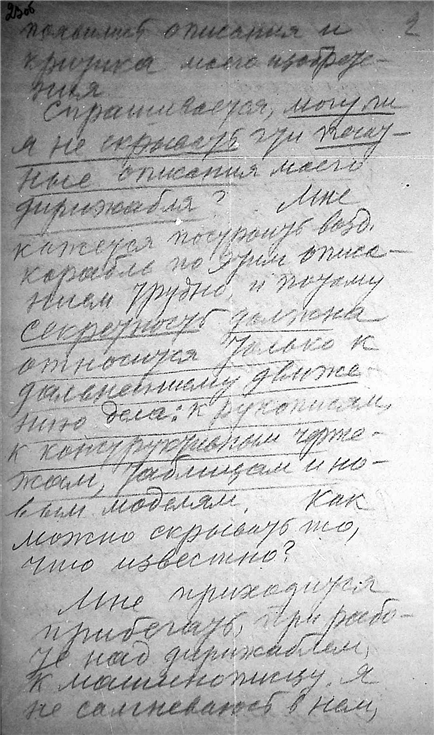 2
появились описания и
критика моего изобрете-
ния.
Спрашивается, могу ли
я не скрывать эти печат-
ные описания моего
дирижабля? Мне
кажется построить возд.
корабль по этим описа-
ниям трудно и потому
секретность должна
относится только к
дальнейшему движе-
нию дела: к рукописям,
к конструктивным черте-
жам, таблицам и но-
вым моделям. Как
можно скрывать то,
что известно?
Мне приходится
прибегать, при рабо-
те над дирижаблем,
к машинописцу. Я
не сомневаюсь в нем,